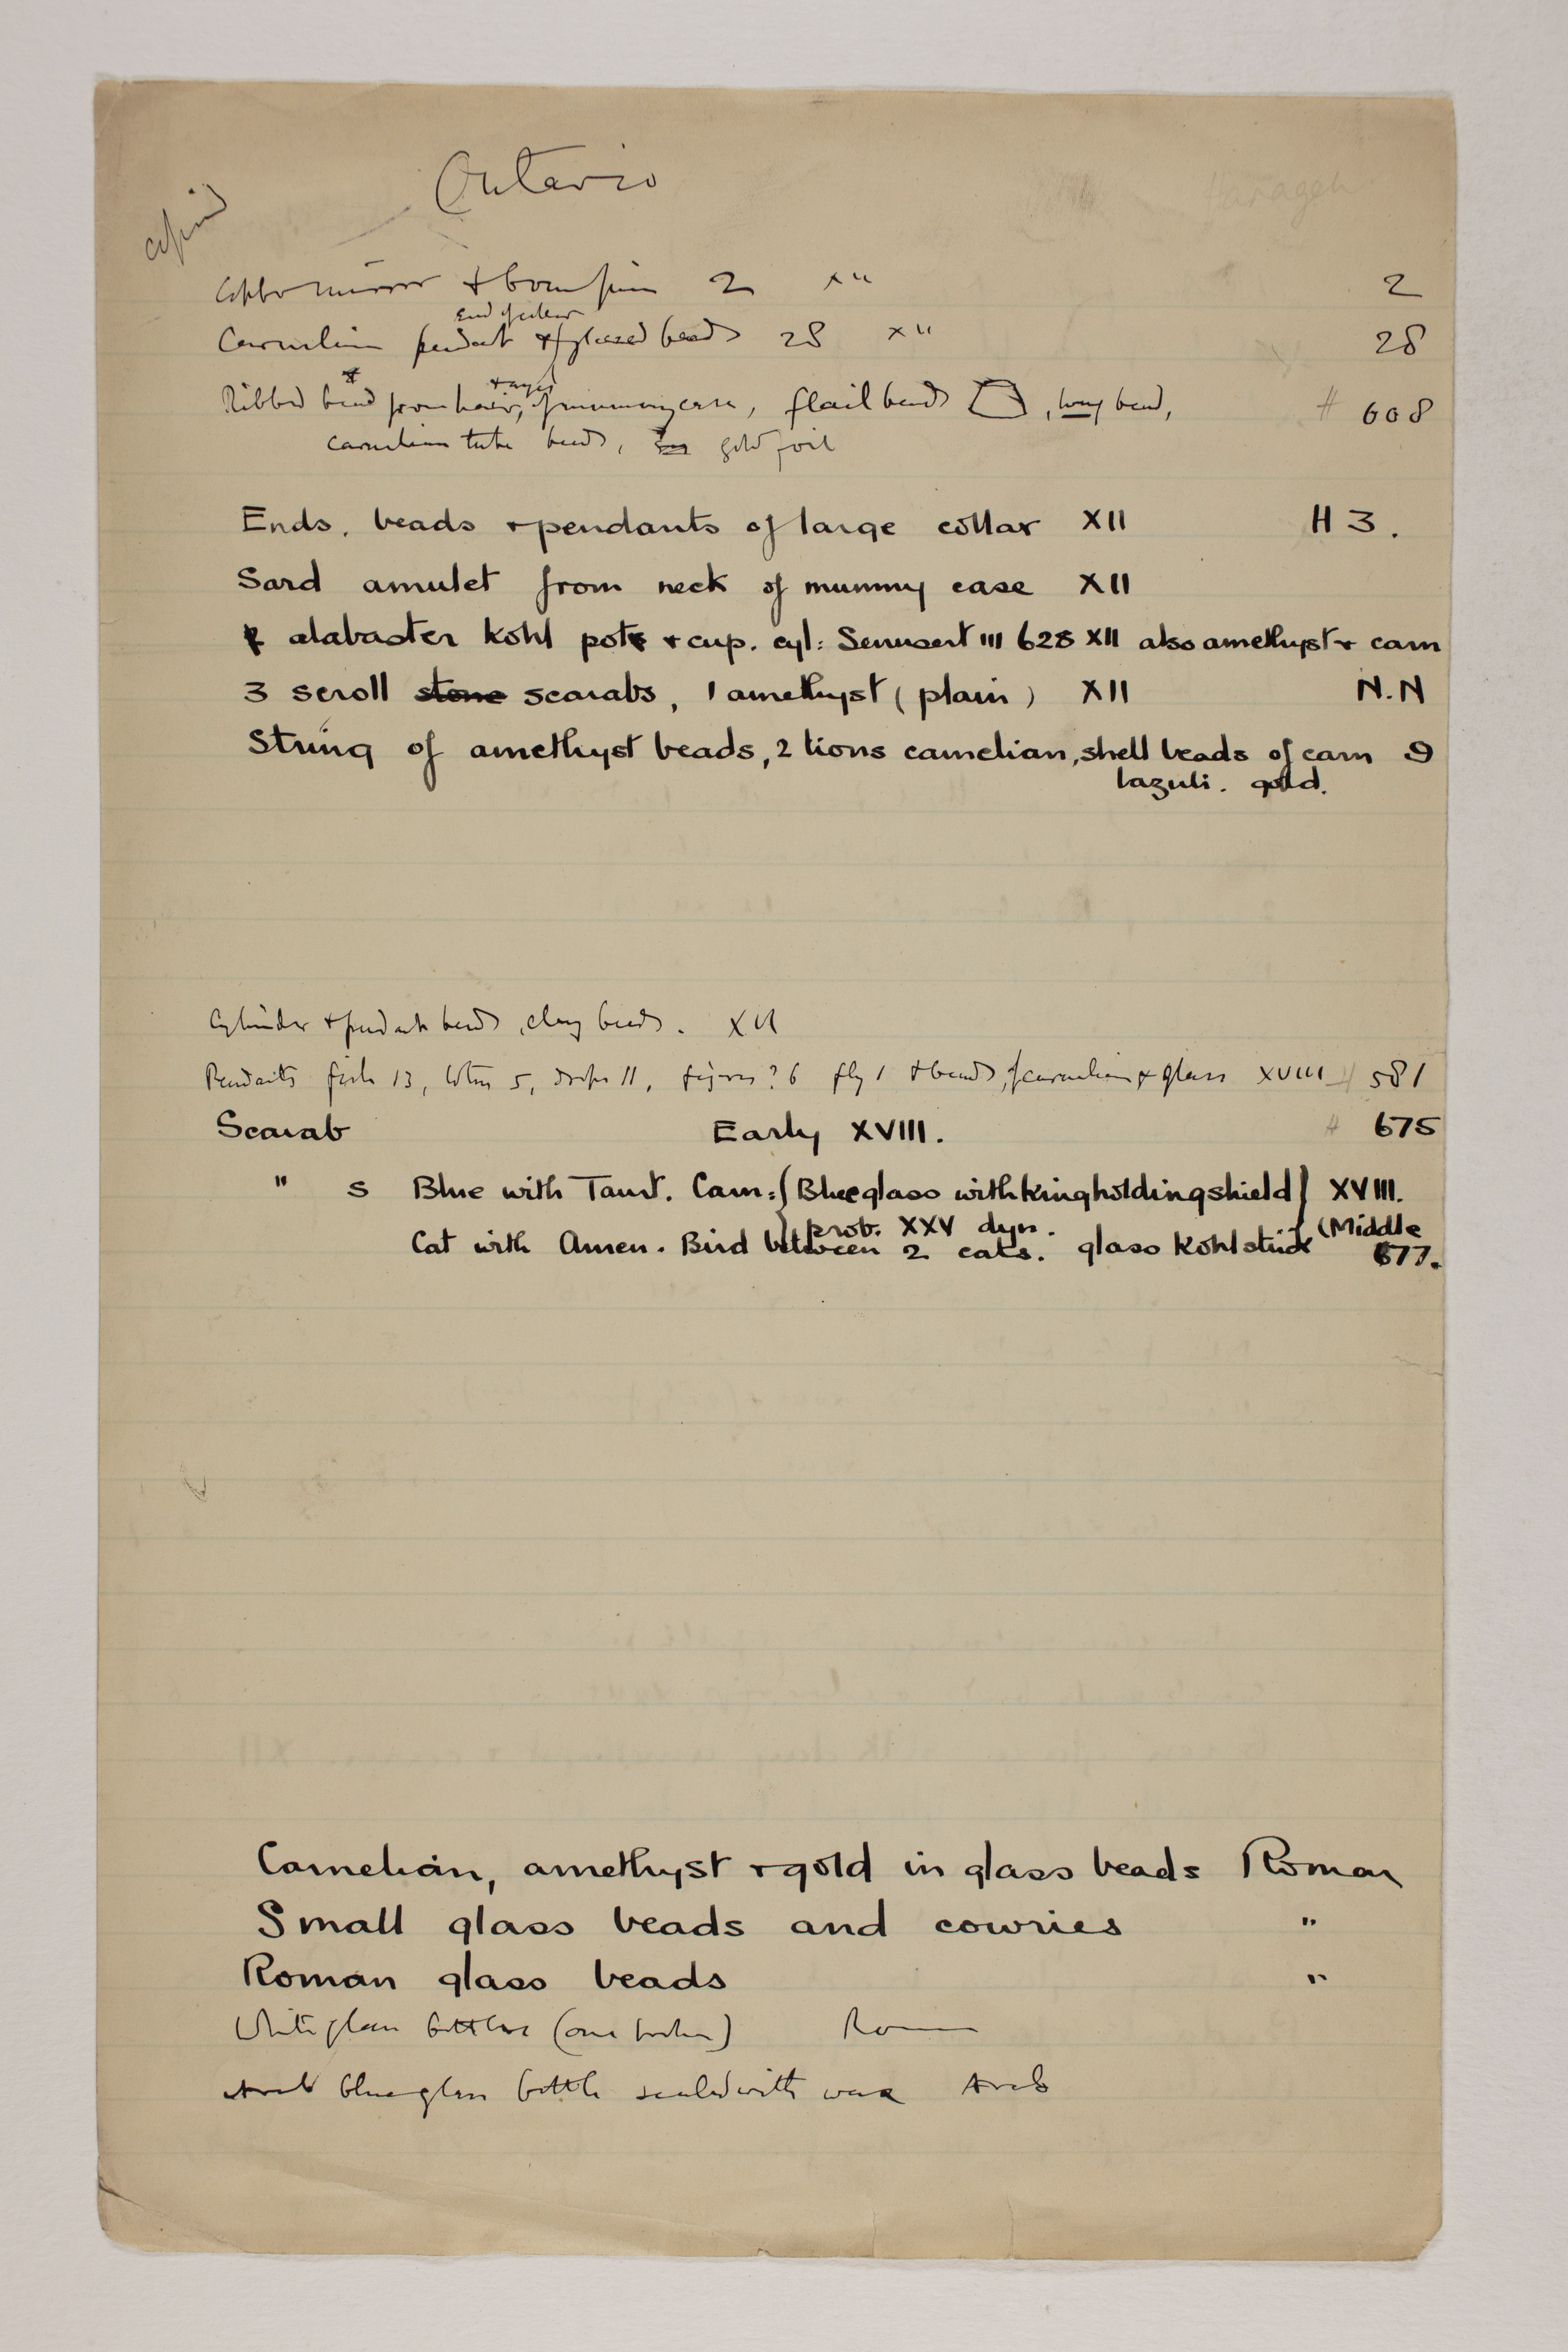 Ontario
copied
Harageh
Copper mirror + 2 XII 2
End of collar
Carnelian pendant + glazed beads 28 XII 28
Ribbed bead from hair, of mummy case, flail beads , long bead, H 608
carnelian tube beads, gold foil
Ends, beads + pendants of large collar XII H 3.
Sard amulet from neck of mummy case XII
alabaster kohl pot + cup. cyl: Senusert III 628 XII also amethyst + carn
3 scroll stone scarabs, 1 amethyst (plain) XII N.N
String of amethyst beads, 2 lions carnelian, shell beads of carn 9
lazuli. gold.
Cylinder + pendant beads, clay beads. XII
Pendants fish 13, lotus 5, drops 11, figures? 6 fly 1 + beads, of carnelian + glass XVIII H 581
Scarab Early XVIII. H 675
" s Blue with Taurt. Carn: (Blue glass with king holding shield) XVIII.
prob. XXV dyn. (Middle
Cat with Amen. Bird between 2 cats. glass Kohl stick 677.
Carnelian, amethyst + gold in glass beads Roman
Small glass beads and cowries "
Roman glass beads "
White glass bottles (one broken) Roman
Arab blue glass bottle sealed with wax Arab